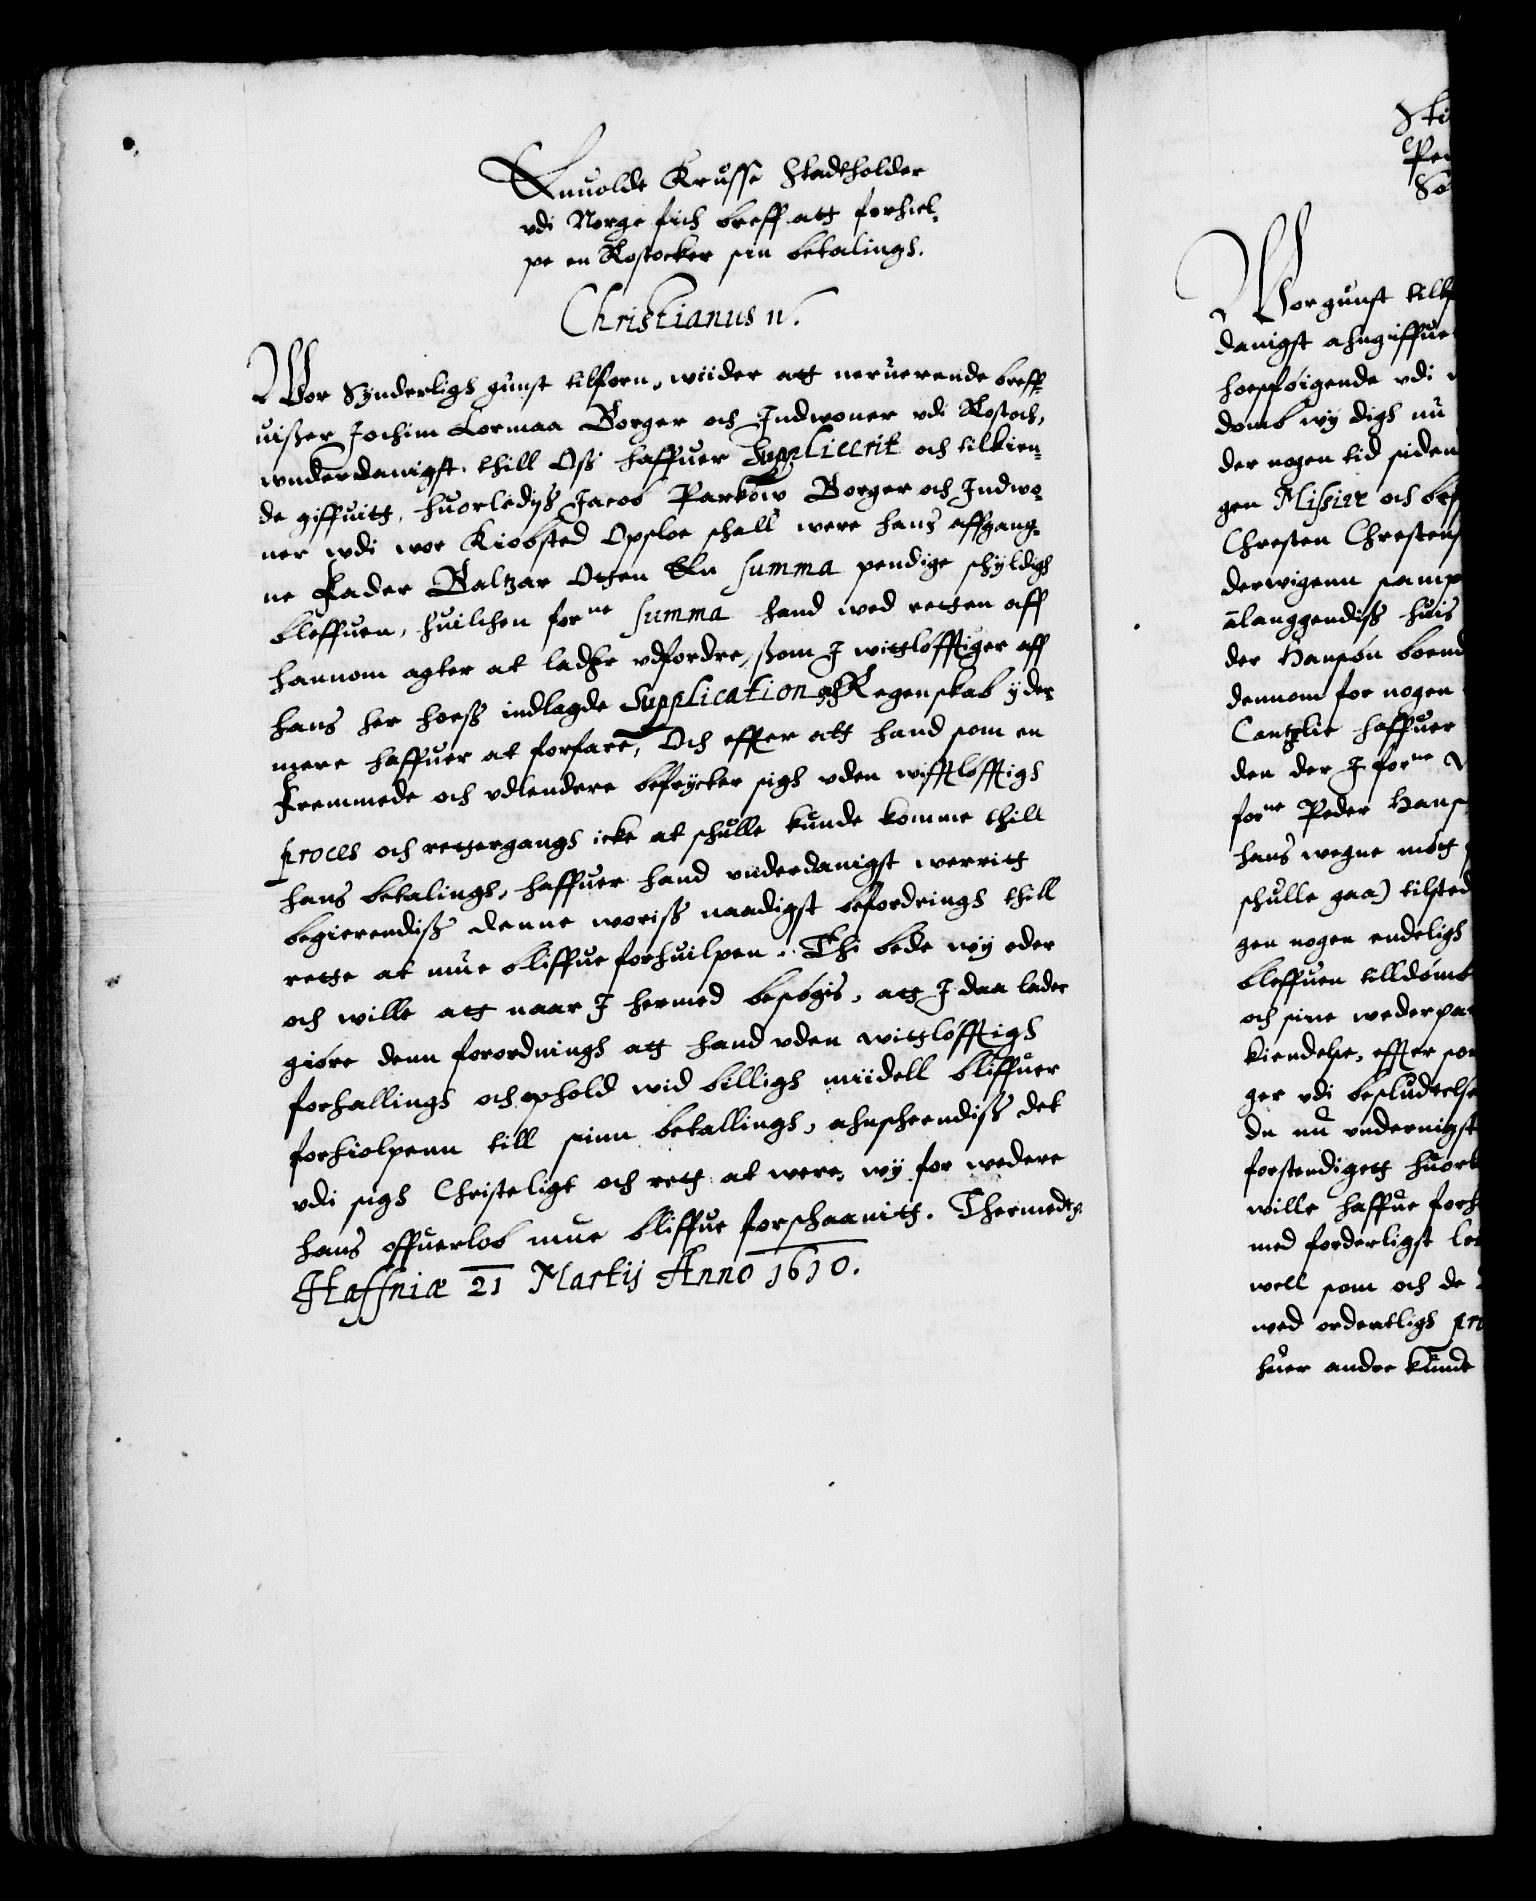 Enuolde Krusse Stadtholder
vdi Norge fich breff att forhiel¬
pe en Rostocker sin betalingh.
Christianus 4.
Wor Synderligh gunst tilforn, wiider att neruerende breff¬
uißer Jochim Lormaa Borger och Indwoner vdi Rostoch,
wnderdanigst thill Oß haffuer Supplicerit och tilkien¬
de giffuitt, huorlediß Jacob Parkow Borger och Indwo¬
ner wdi wor Kiobsted Opsloe schall were hans affgang¬
ne Fader Baltzar Otten En summa pendige schyldigh
bleffuen, huilchen forne summa hand wed retten aff
hannom agter at ladhe vdfordre, som I wittløfftiger aff
hans her hoeß indlagde Supplication och Regenskab yder
mere haffuer at forfare, Och effter att hand som en
Fremmede och vdlendere befrycter sigh vden wittløfftigh
proces och rettergangh icke at schulle kunde komme thill
hans betalingh, haffuer hand vnderdanigst werritt
begierendiß denne woriß naadigst befordringh thill
rette at mue bliffue forhuilpen. Thi bede wy eder
och wille att naar I hermed besøgis, att I daa lader
giøre denn forordningh att hand vden wittløfftigh
forhallingh och ophold wid billigh middell bliffuer
forhiolpenn till sinn betallingh, ahnscheendiß det
vdi sigh Christeligt och rett at were, wy for widere
hans offuerlob mue bliffue forschaanitt. Thermedtt.
Haffniæ 21 Martij Anno 1610.
Wor gunst tilf
danigst ahngiffue
hoesføigende vdi
domb wy digh nu
der nogen tid siden
gen Missive och bef
Chresten Chrestens
derwigenn samp
alanggendiß huis
der Hansøn boend
dennom for nogen
Cantzlie haffuer
den der I forne
forne Peder Hans
hans wegne møtt
schulle gaa) tilsted
gen nogen endeligh
bleffuen tilldømb
och sine wederpar
kiendelse, effter som
ger vdi besluttelse
du nu vndernigst
forstendigett huor
wille haffue forh
med forderligst
well som och de
wed ordentligh pro
huer andre kunde